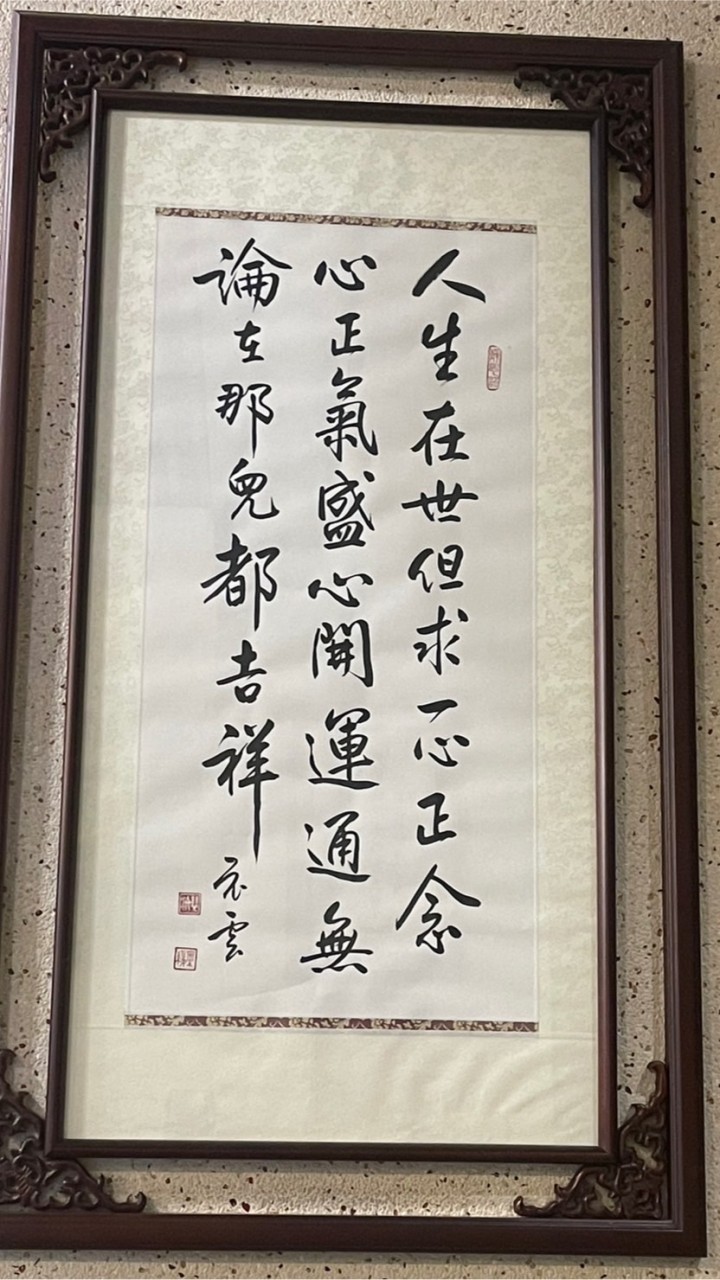 人生在世但求一心正念
心正氣盛心開運通無
論在那兒都吉祥
雲